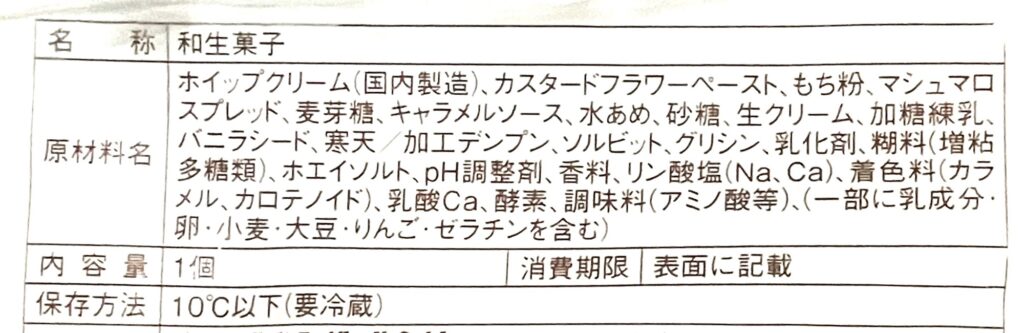 名称 和生菓子
原材料名 ホイップクリーム(国内製造)、カスタードフラワーペースト、もち粉、マシュマロ
スプレッド、麦芽糖、キャラメルソース、水あめ、砂糖、生クリーム、加糖練乳、
バニラシード、寒天／加工デンプン、ソルビット、グリシン、乳化剤、糊料(増粘
多糖類)、ホエイソルト、pH調整剤、香料、リン酸塩(Na、Ca)、着色料(カラ
メル、カロテノイド)、乳酸Ca、酵素、調味料(アミノ酸等)、(一部に乳成分・
卵・小麦・大豆・りんご・ゼラチンを含む)
内容量 1個 消費期限 表面に記載
保存方法 10℃以下(要冷蔵)